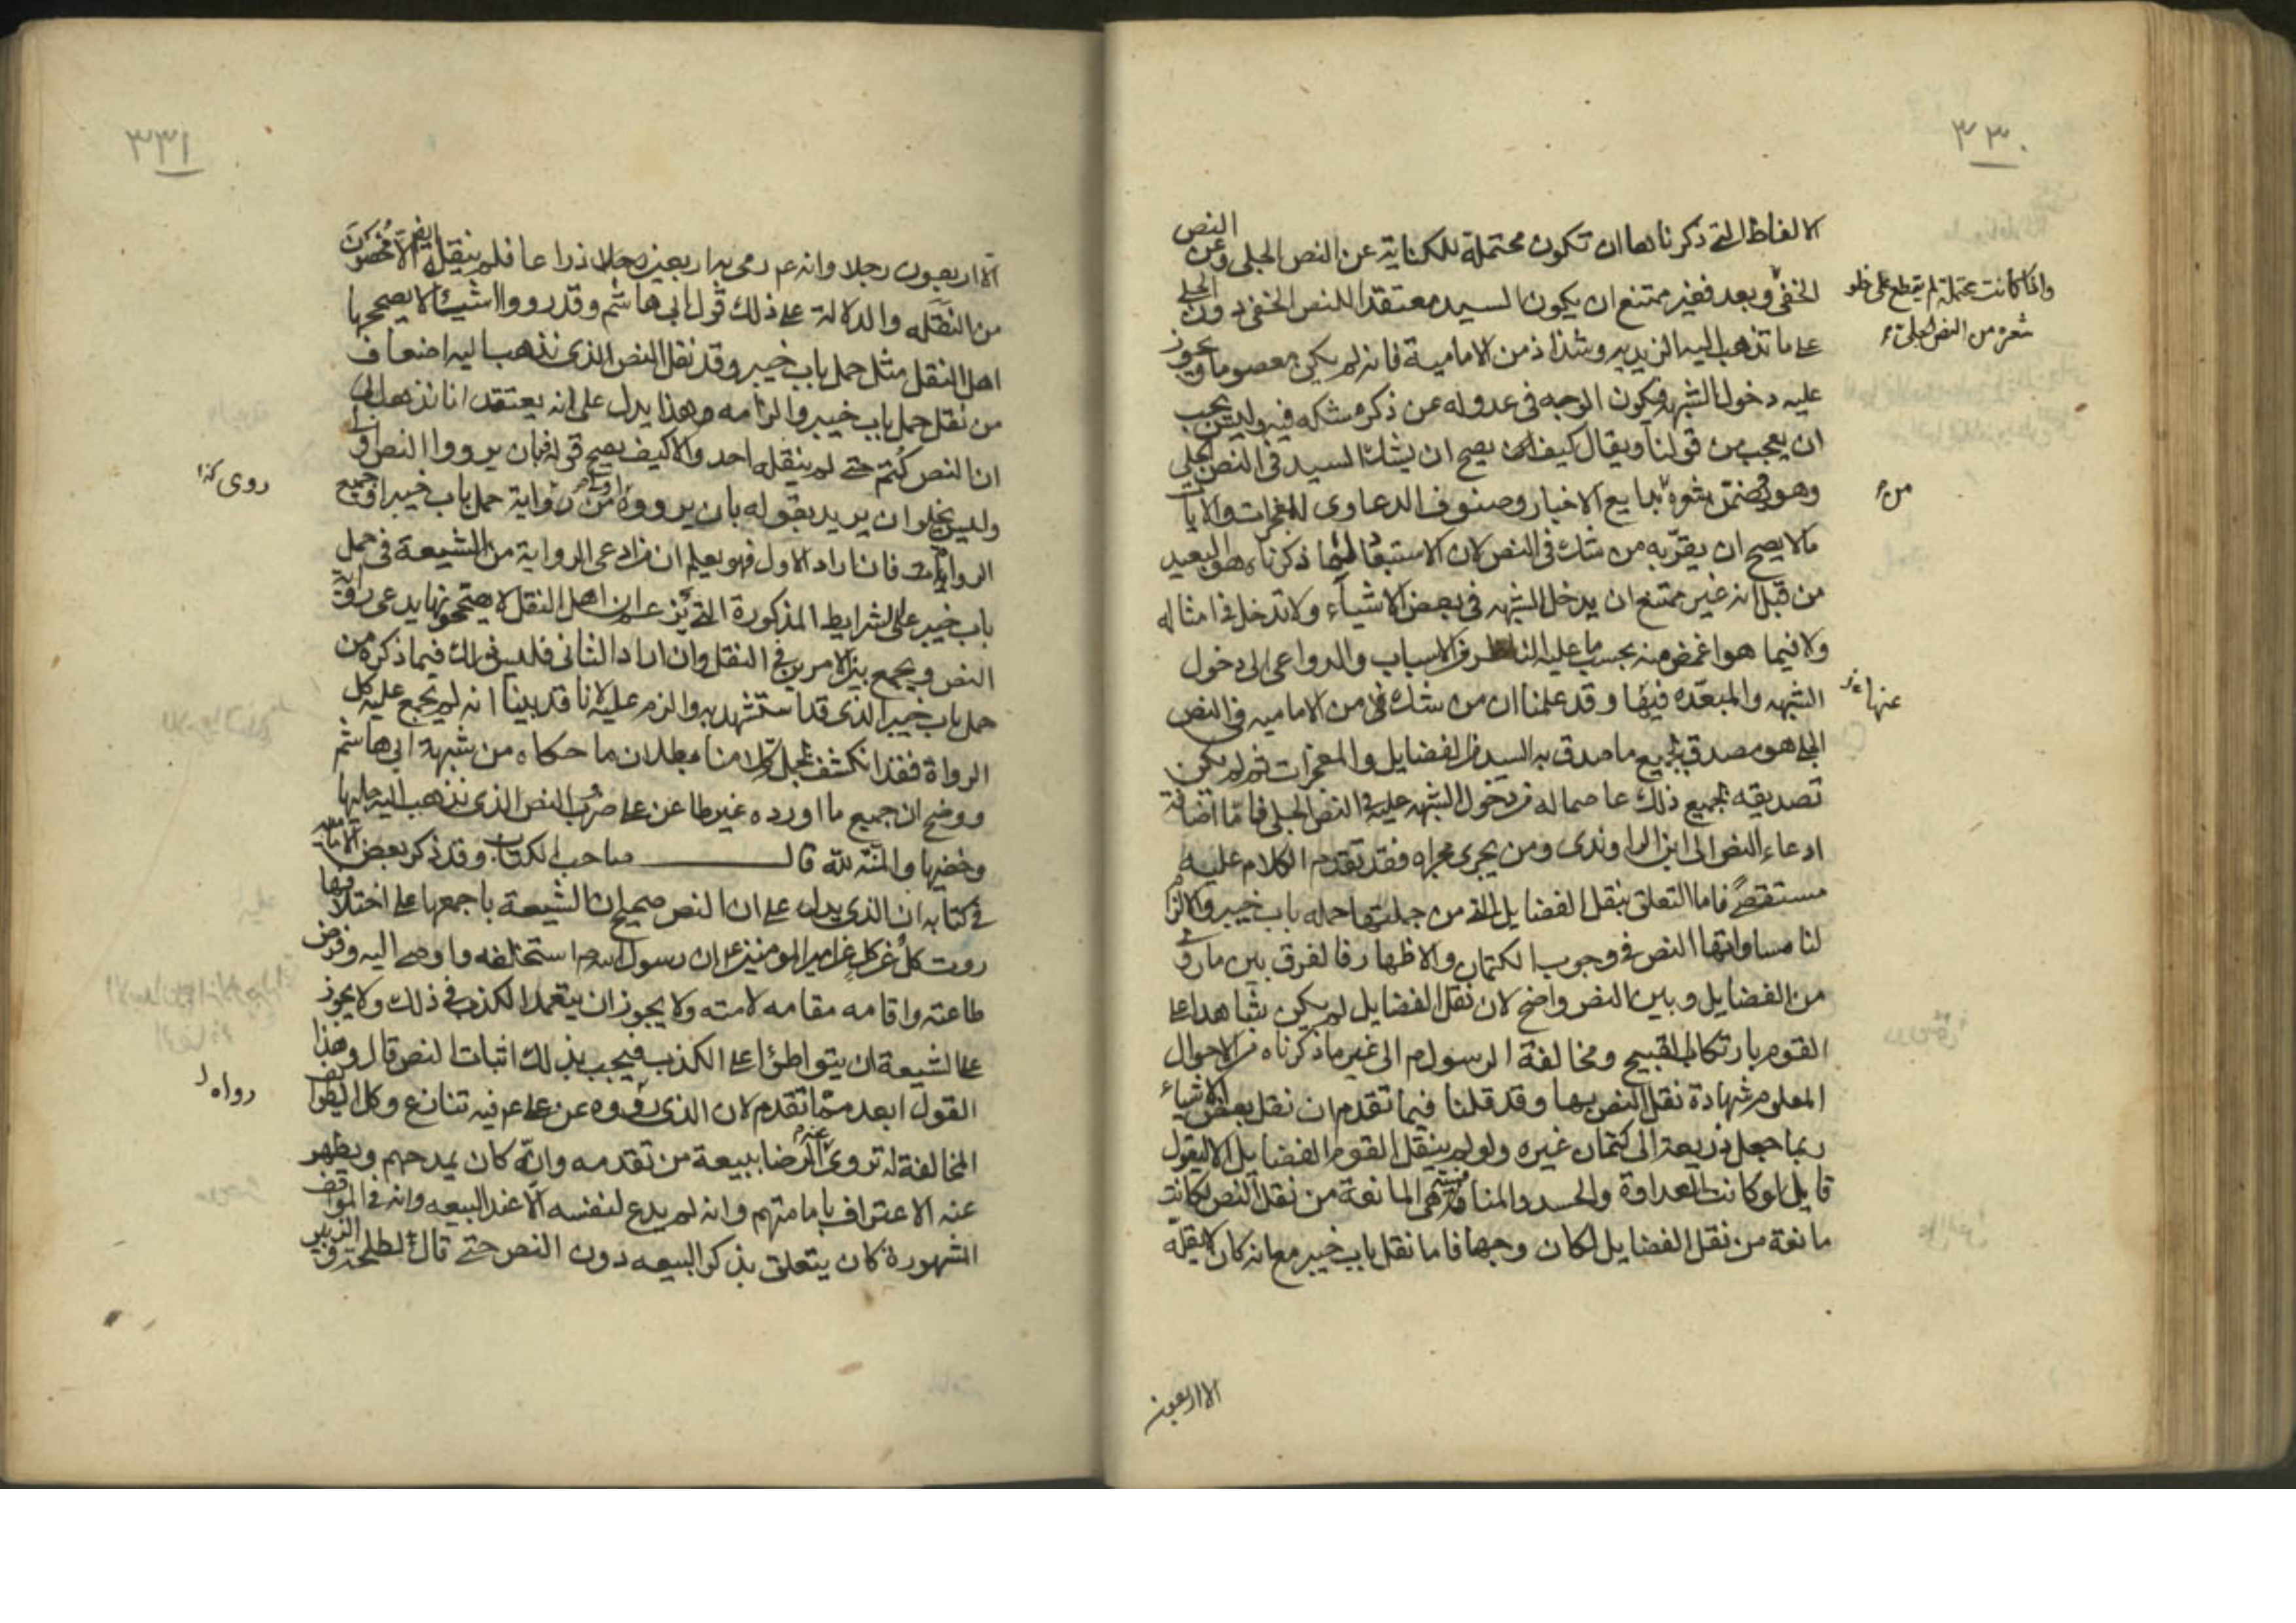 ٣٣٠
الالفاظ التي ذكرناها ان تكون محتملة للكناية عن النص الجلي وعن النص
الخفي وبعد فغير ممتنع ان يكون السيد معتقدا للنص الخفي دون الجلي
على ما تذهب اليه الزيدية وشذاذ من الامامية فانه لم يكن معصوما ويجوز
عليه دخول الشبهة فيكون الوجه في عدوله عن ذكره شكه فيه وليس يجب
ان يعجب من قولنا ويقال كيف يصح ان يشك السيد في النص الجلي
وهو يضمن شعره بدايع الاخبار وصنوف الدعاوى للمعجزات والايات
ما لا يصح ان يقر به من شك في النص لان الاستبعاد لما ذكرناه هو البعيد
من قبل انه غير ممتنع ان يدخل الشبهه في بعض الاشياء ولا تدخل في امثاله
ولا فيما هو اغمض منه بحسب ما عليه الناظر من الاسباب والدواعى الى دخول
الشبهه والمبعده فيها وقد علمنا ان من شك في من الاماميه في النص
الجلي هو مصدق بجميع ما صدق به السيد من الفضايل والمعجزات ثم لم يكن
تصديقه بجميع ذلك عاصما له من دخول الشبهه عليه في النص الجلي فاما اضافة
ادعاء النص الى ابن الراوندى ومن يجرى مجراه فقد تقدم الكلام عليه
مستقصى فاما التعلق بنقل الفضايل التي من جملتها حمله باب خيبر والزام
لنا مساواتها النص في وجوب الكتمان والاظهار فالفرق بين ما روى
من الفضايل وبين النص واضح لان نقل الفضايل لم يكن شاهدا على
القوم بارتكاب القبيح ومخالفة الرسول م الى غير ما ذكرناه من الاحوال
المعلوم شهادة نقل النص بها وقد قلنا فيما تقدم ان نقل بعض الاشياء
ربما جعل ذريعة الى كتمان غيره ولو لم ينقل القوم الفضايل الا ليقول
قايل لو كانت العداوة والحسد والمنافسة هي المانعة من نقل النص لكانت
مانعة من نقل الفضايل لكان وجها فاما نقل باب خيبر مع انه كان لا يقله
الا اربعون
واذا كانت محتملة لم يقطع على خلو
شعره من النص الجلي
من
عنها
٣٣١
الا اربعون رجلا وانه عم رمى به اربعين ذراعا فلم ينقله ايضا الا مخصوصون
من النقله والدلالة على ذلك قول ابى هاشم وقد رووا اشياء لا يصححها
اهل النقل مثل حمل باب خيبر وقد نقل النص الذى نذهب اليه اضعاف
من نقل حمل باب خيبر والزامه هذا يدل على انه يعتقد انا نذهب الى
ان النص كتم حتى لم ينقله احد والا كيف يصح قوله فبان يرووا النص اولى
وليس يخلو ان يريد بقوله بان يرووه من رواية حمل باب خيبر او جميع
الروايات فان اراد الاول فهو يعلم ان من ادعى الرواية من الشيعة في حمل
باب خيبر على الشرايط المذكورة التي يزعم ان اهل النقل لا يصححونها يدعى رواية
النص ويجمع بين الامرين في النقل وان اراد الثانى فليس ذلك فيما ذكره من
حمل باب خيبر الذى قد استشهد به والزم عليه لانا قد بينا انه لم يجمع عليه كل
الرواة فقد انكشف بجمل كلامنا بطلان ما حكاه من شبهة ابى هاشم
ووضح ان جميع ما اورده غير طاعن على ضرب النص الذى نذهب اليه جليها
وخفيها والمنة لله قال صاحب الكتاب وقد ذكر بعض الاماميه
في كتابه ان الذى يدل على ان النص صحيح ان الشيعة باجمعها على اختلافها
روت كل عن كل عن امير المومنين عم ان رسول الله ص استخلفه واوصى اليه وفرض
طاعته واقامه مقامه لامته ولا يجوز ان يتعمد الكذب في ذلك ولا يجوز
على الشيعة ان يتواطئوا على الكذب فيجب بذلك اثبات النص قال وهذا
القول ابعد مما تقدم لان الذى رووه عن على عم فيه تنازع وكل الطوايف
المخالفة له تروى عنه الرضا ببيعة من تقدمه وانه كان يمدحهم ويظهر
عنه الاعتراف بامامتهم وانه لم يدع لنفسه الا عند البيعه وانه في المواقف
المشهورة كان يتعلق بذكر البيعه دون النص حتى قال لطلحة والزبير
روى كذا
رواه